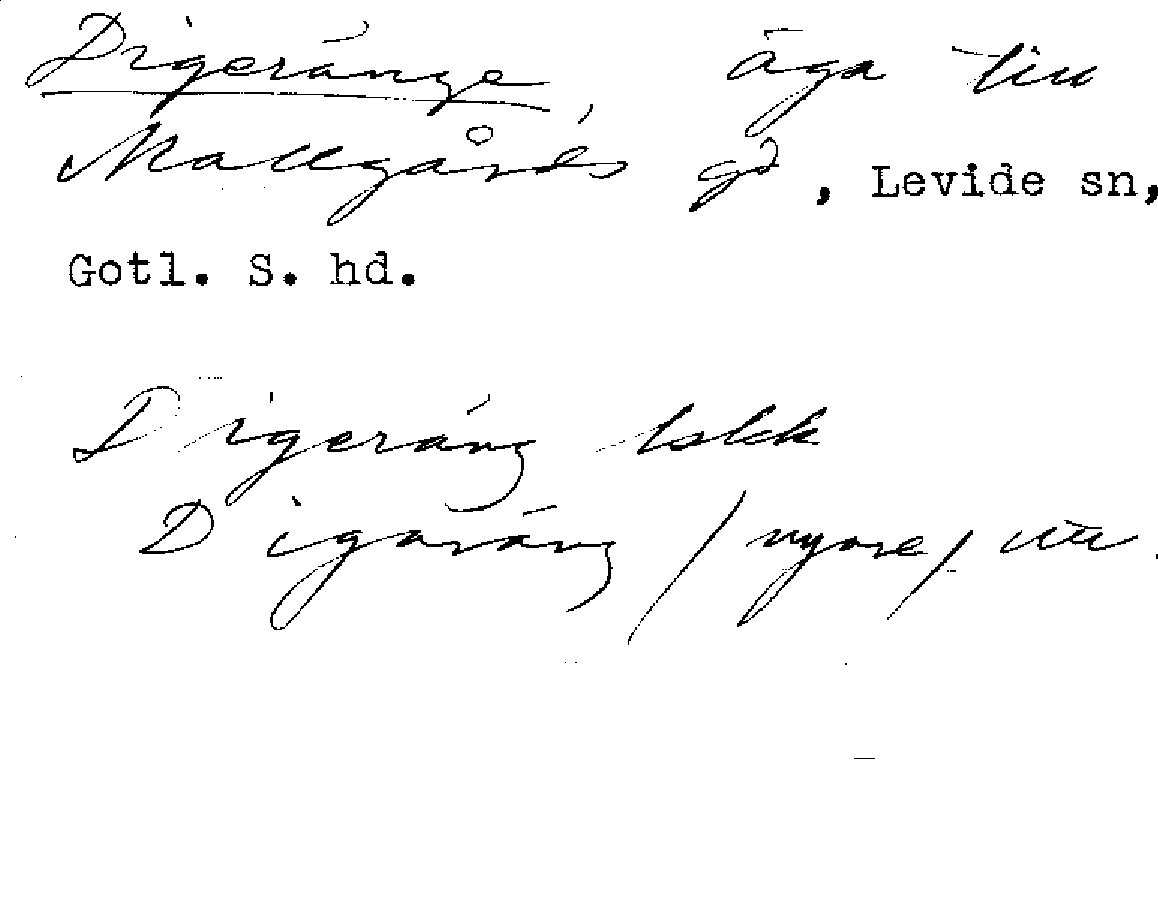 Digeränge, äga till
Mallgårds gd, Levide sn,
Gotl. S. hd.
Digeräng lslkk
Digaräng / nyare / utt.